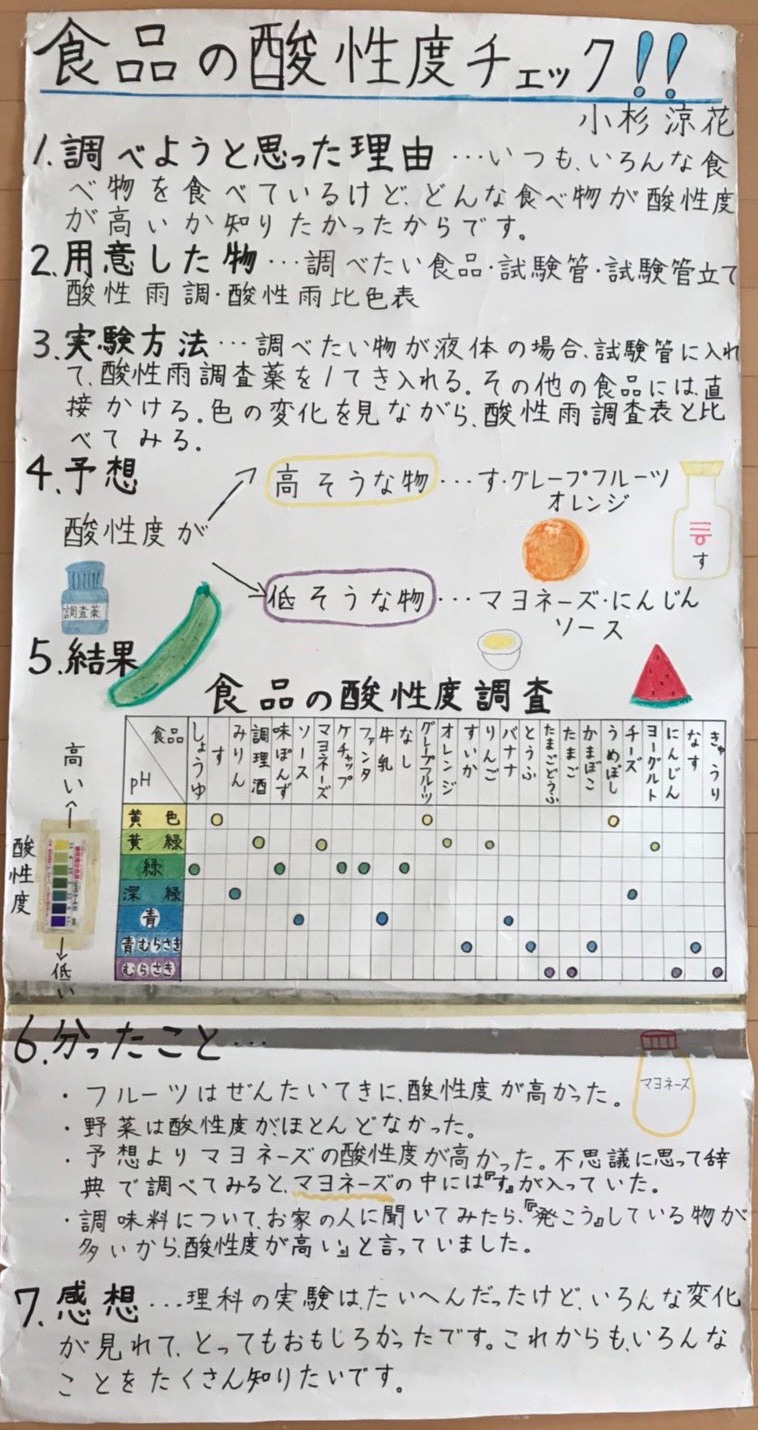 食品の酸性度チェック!!
小杉涼花
1.調べようと思った理由…いつも、いろんな食
べ物を食べているけど、どんな食べ物が酸性度
が高いか知りたかったからです。
2.用意した物…調べたい食品・試験管・試験管立て
酸性雨調・酸性雨比色表
3.実験方法…調べたい物が液体の場合、試験管に入れ
て、酸性雨調査薬を1てき入れる。その他の食品には、直
接かける。色の変化を見ながら、酸性雨調査表と比
べてみる。
4.予想
高そうな物…す・グレープフルーツ
オレンジ
酸性度が
す
調査薬
低そうな物…マヨネーズ・にんじん
ソース
5.結果
食品の酸性度調査
高い
酸性度
低い
食品
pH
しょうゆ
す
みりん
調理酒
味ぽんず
ソース
マヨネーズ
ケチャップ
ファンタ
牛乳
なし
グレープフルーツ
オレンジ
すいか
りんご
バナナ
とうふ
たまごどうふ
たまご
かまぼこ
うめぼし
チーズ
ヨーグルト
にんじん
なす
きゅうり
黄色
黄緑
緑
深緑
青
青むらさき
むらさき
6.分ったこと…
マヨネーズ
・フルーツはぜんたいてきに、酸性度が高かった。
・野菜は酸性度がほとんどなかった。
・予想よりマヨネーズの酸性度が高かった。不思議に思って辞
典で調べてみると、マヨネーズの中には『す』が入っていた。
・調味料について、お家の人に聞いてみたら、『発こう』している物が
多いから、酸性度が高い』と言っていました。
7.感想…理科の実験は、たいへんだったけど、いろんな変化
が見れて、とってもおもしろかったです。これからも、いろんな
ことをたくさん知りたいです。